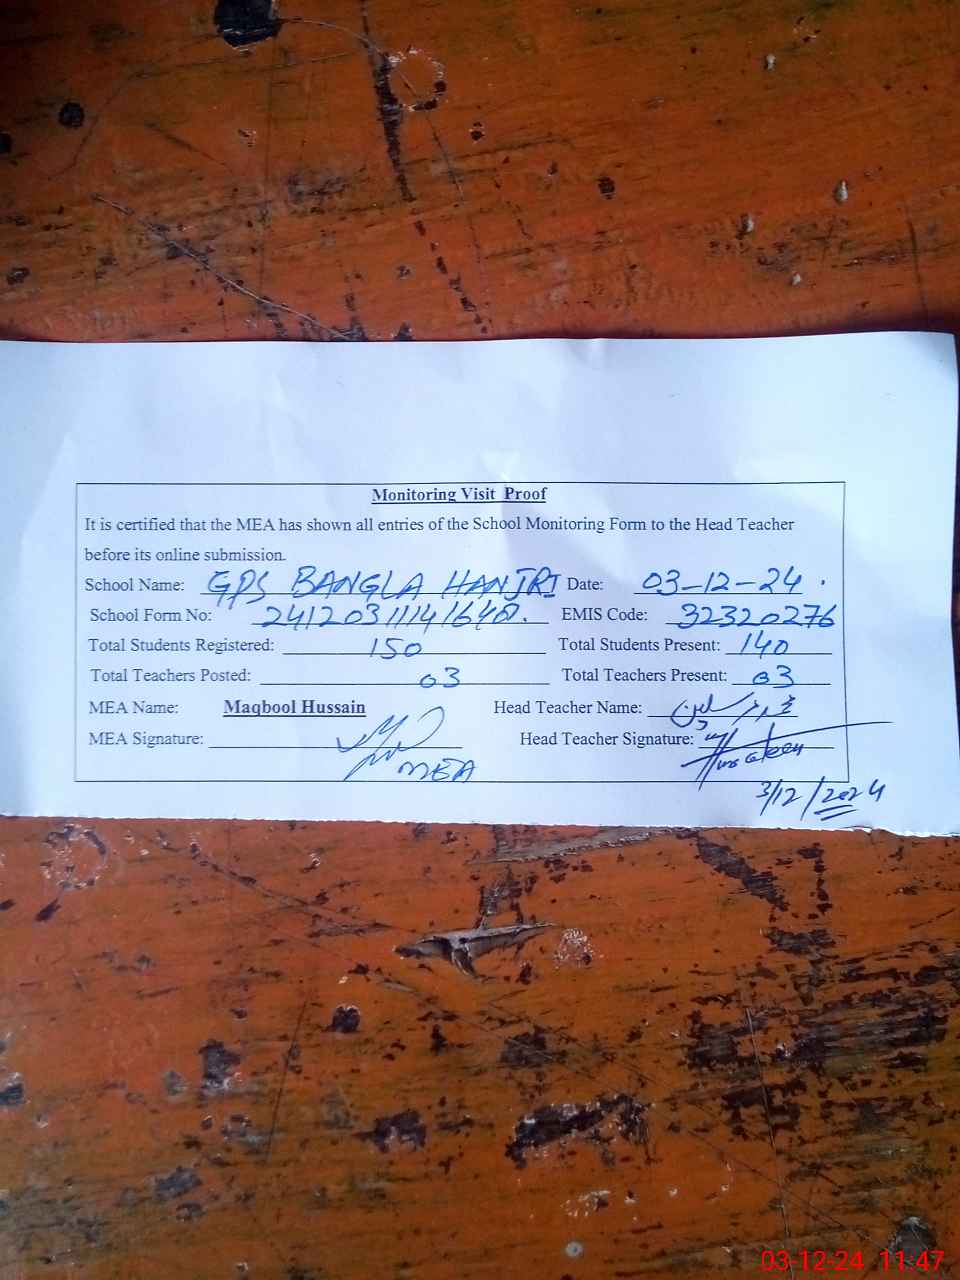 Monitoring Visit Proof
It is certified that the MEA has shown all entries of the School Monitoring Form to the Head Teacher
before its online submission.
School Name: GPS BANGLA HANJRI Date: 03-12-24
School Form No: EMIS Code: 32320276
Total Students Registered: 150 Total Students Present: 140
Total Teachers Posted: 03 Total Teachers Present: 03
MEA Name: Maqbool Hussain Head Teacher Name:
MEA Signature: MEA Head Teacher Signature:
3/12/2024
03-12-24 11:47